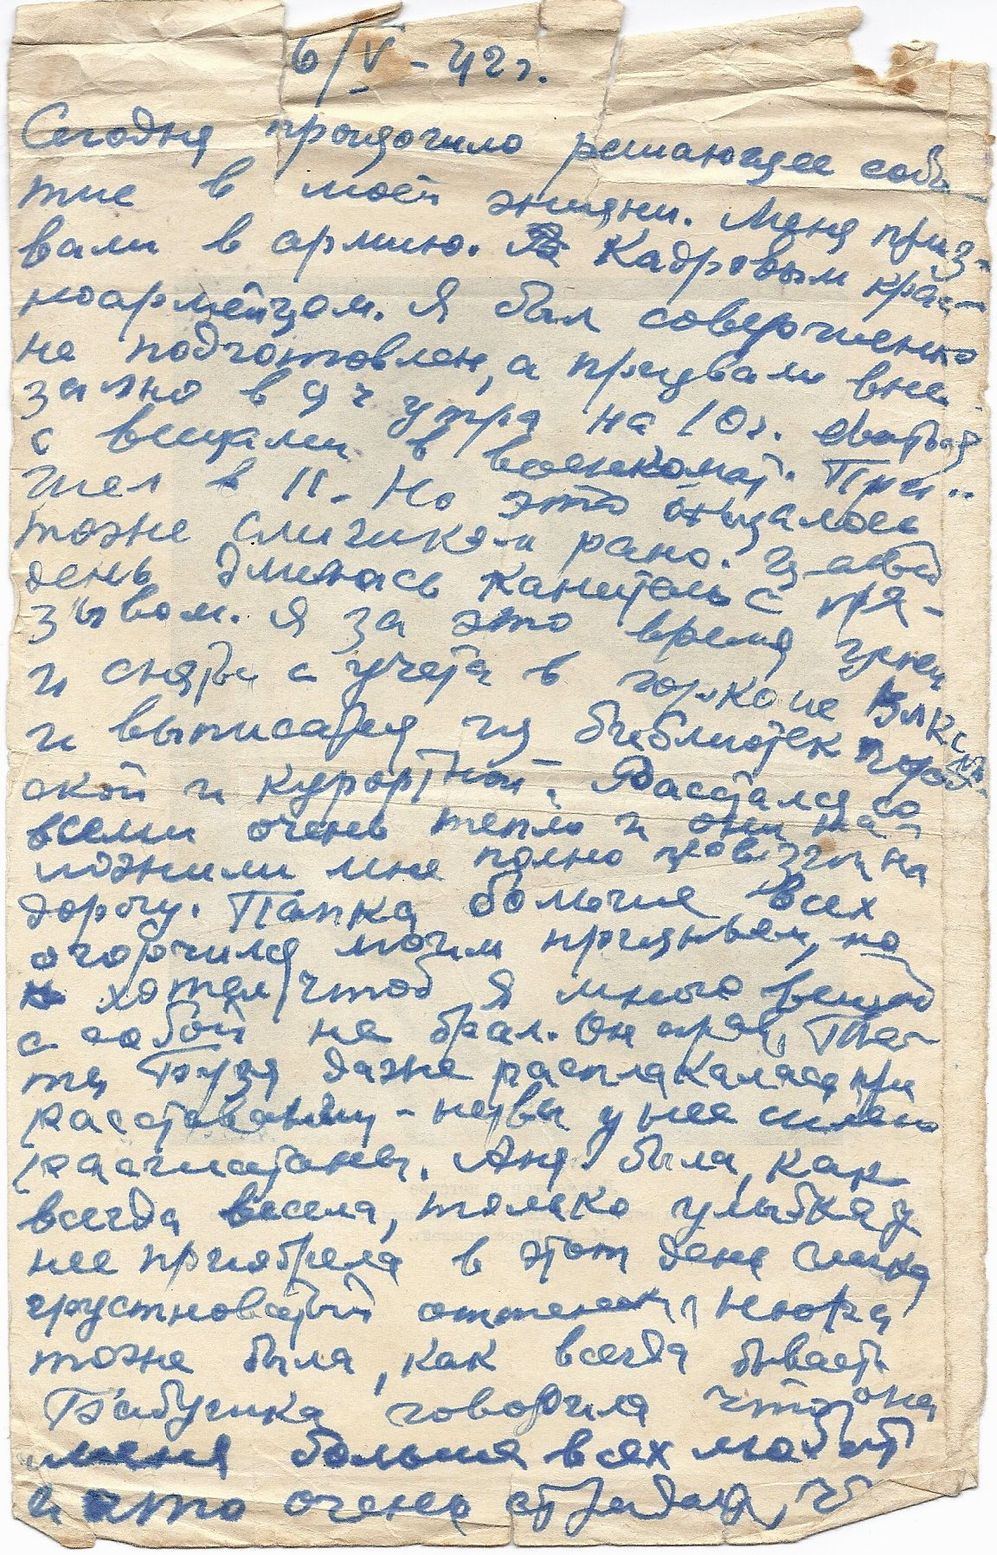 6/V – 42 г.
Сегодня произошло решающее собы-
тие в моей жизни. Меня приз-
вали в армию. Кадровым крас-
ноармейцом. Я был совершенно
не подготовлен, а призвали вне-
запно в 9 ч утра на 10 ч.
с вещами в военкомат. При-
шел в 11. Но это оказалось
тоже слишком рано. Целый
день длилась канитель с при-
зывом. Я за это время успел
и снятся с учета в горкоме ВЛКСМ
и выписатся из библиотек город-
ской и курортной. Расстался со
всеми очень тепло и они на-
ложили мне полно провизии на
дорогу. Папка больше всех
огорчился моим призывом, но
хотел, чтоб я много вещей
с собой не брал. Он прав. Тет-
тя Бузя даже расплакалась при
расставании – нервы у нее сильно
расшатаны. Аня была, как
всегда весела, только улыбка у
нее приобрела в этот день слегка
грустноватый оттенок, Нюра
тоже была, как всегда бывает
Бабушка говорила что она
меня больше всех любит
и что очень страдает, ч